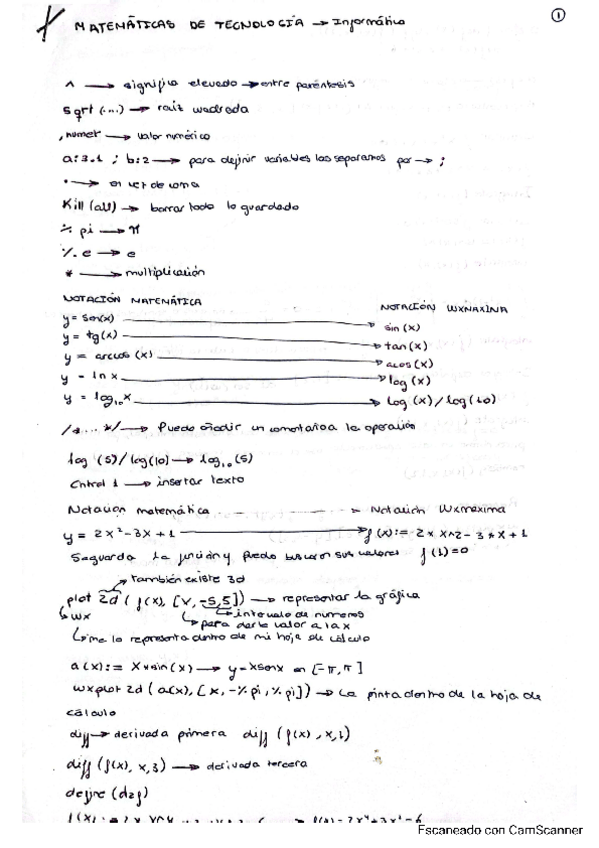 MATEMÁTICAS DE TECNOLOGÍA → Informática
1
^ → significa elevado → entre paréntesis
Sqrt (...) → raíz cuadrada
, numer → valor numérico
a:3.1 ; b:2 → para definir variables las separamos por → ;
. → en vez de coma
Kill (all) → borrar todo lo guardado
% pi → π
%. e → e
* → multiplicación
NOTACIÓN MATEMÁTICA
NOTACIÓN WXMAXIMA
y = sen(x) → sin (x)
y = tg(x) → tan (x)
y = arccos (x) → acos (x)
y = ln x → log (x)
y = log₁₀ x → log (x) / log (10)
/*... */ → Puedo añadir un comentario a la operación
log (5) / log(10) → log₁₀ (5)
Cntrol 1 → insertar texto
Notación matemática → Notación Wxmaxima
y = 2x² - 3x + 1 → f (x) := 2 * x^2 - 3 * x + 1
Se guarda la función y puedo buscar sus valores f (1) = 0
también existe 3d
plot 2d ( f(x), [x, -5,5]) → representar la gráfica
wx
intervalo de números
para darle valor a la x
me lo representa dentro de mi hoja de cálculo
a (x) := x * sin (x) → y = x senx en [-π, π]
wxplot 2d ( a(x), [ x, -% pi , % pi ]) → La pinta dentro de la hoja de
cálculo
diff → derivada primera diff ( f(x) , x, 1)
diff (f(x), x, 3) → derivada tercera
define (d2f)
Escaneado con CamScanner